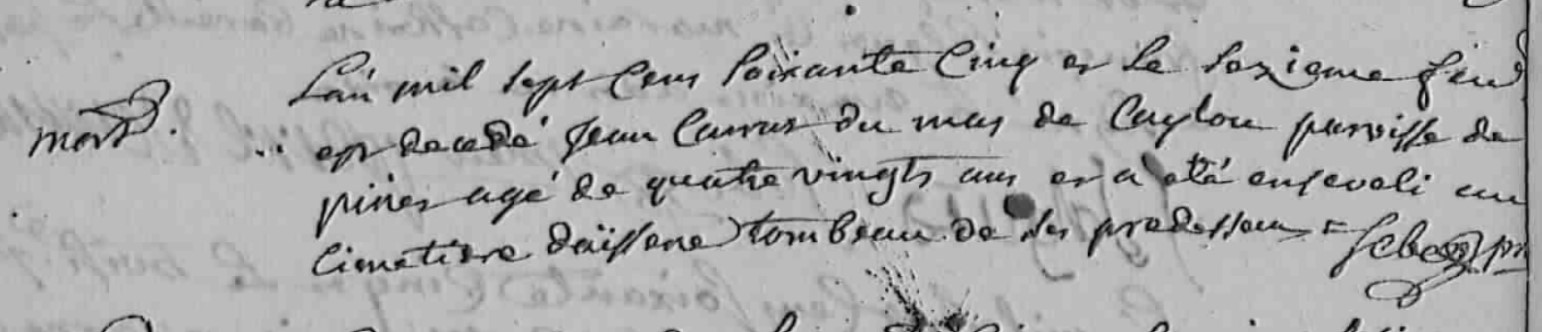 mort.
L'an mil sept cens soixante cinq et le sezieme feud
est decedé Jean Carrus du mas de Caylou parroisse de
pines agé de quatre vingts ans et a eté enseveli au
cimetière d'aissene tombeau de ses predesseurs =